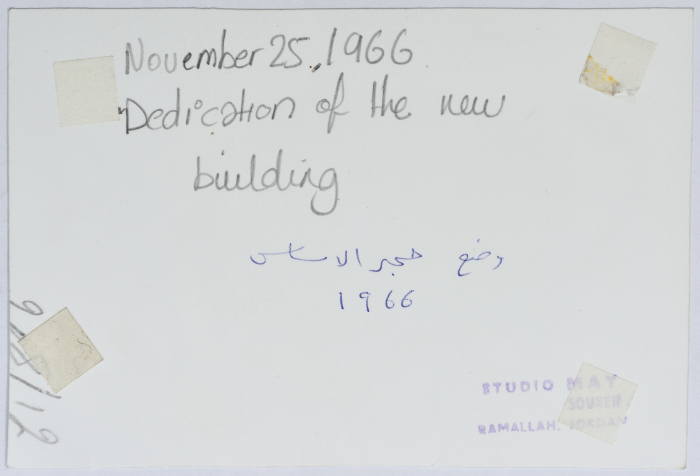 November 25, 1966
Dedication of the new
building
وضع حجر الاساس
1966
STUDIO MAY
SOUREN
RAMALLAH, JORDAN